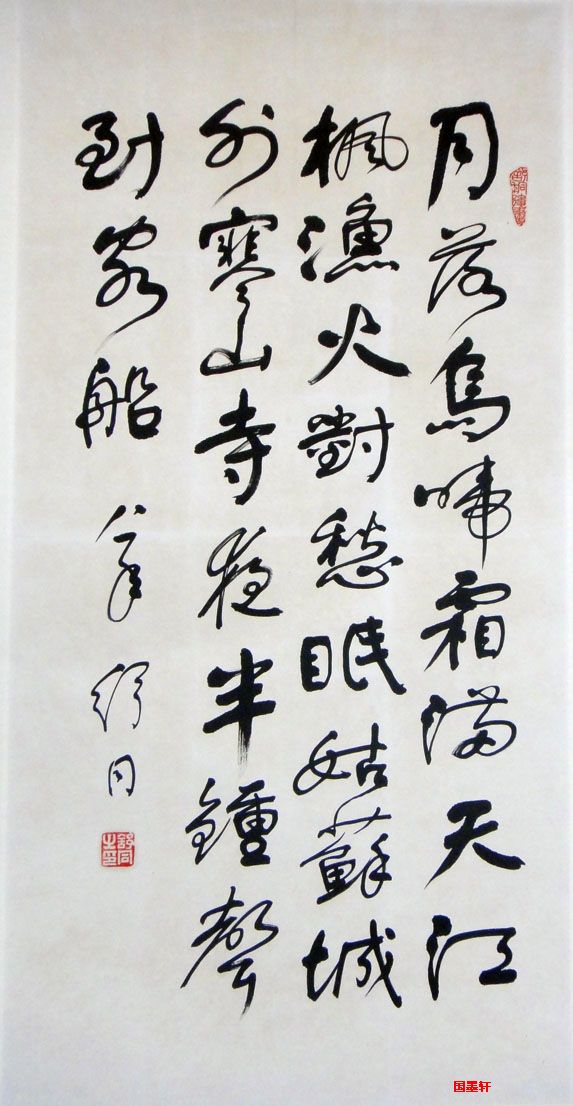 月落烏啼霜滿天江
楓漁火對愁眠姑蘇城
外寒山寺夜半鍾聲
到客船
舒同
舒同之印
国墨轩